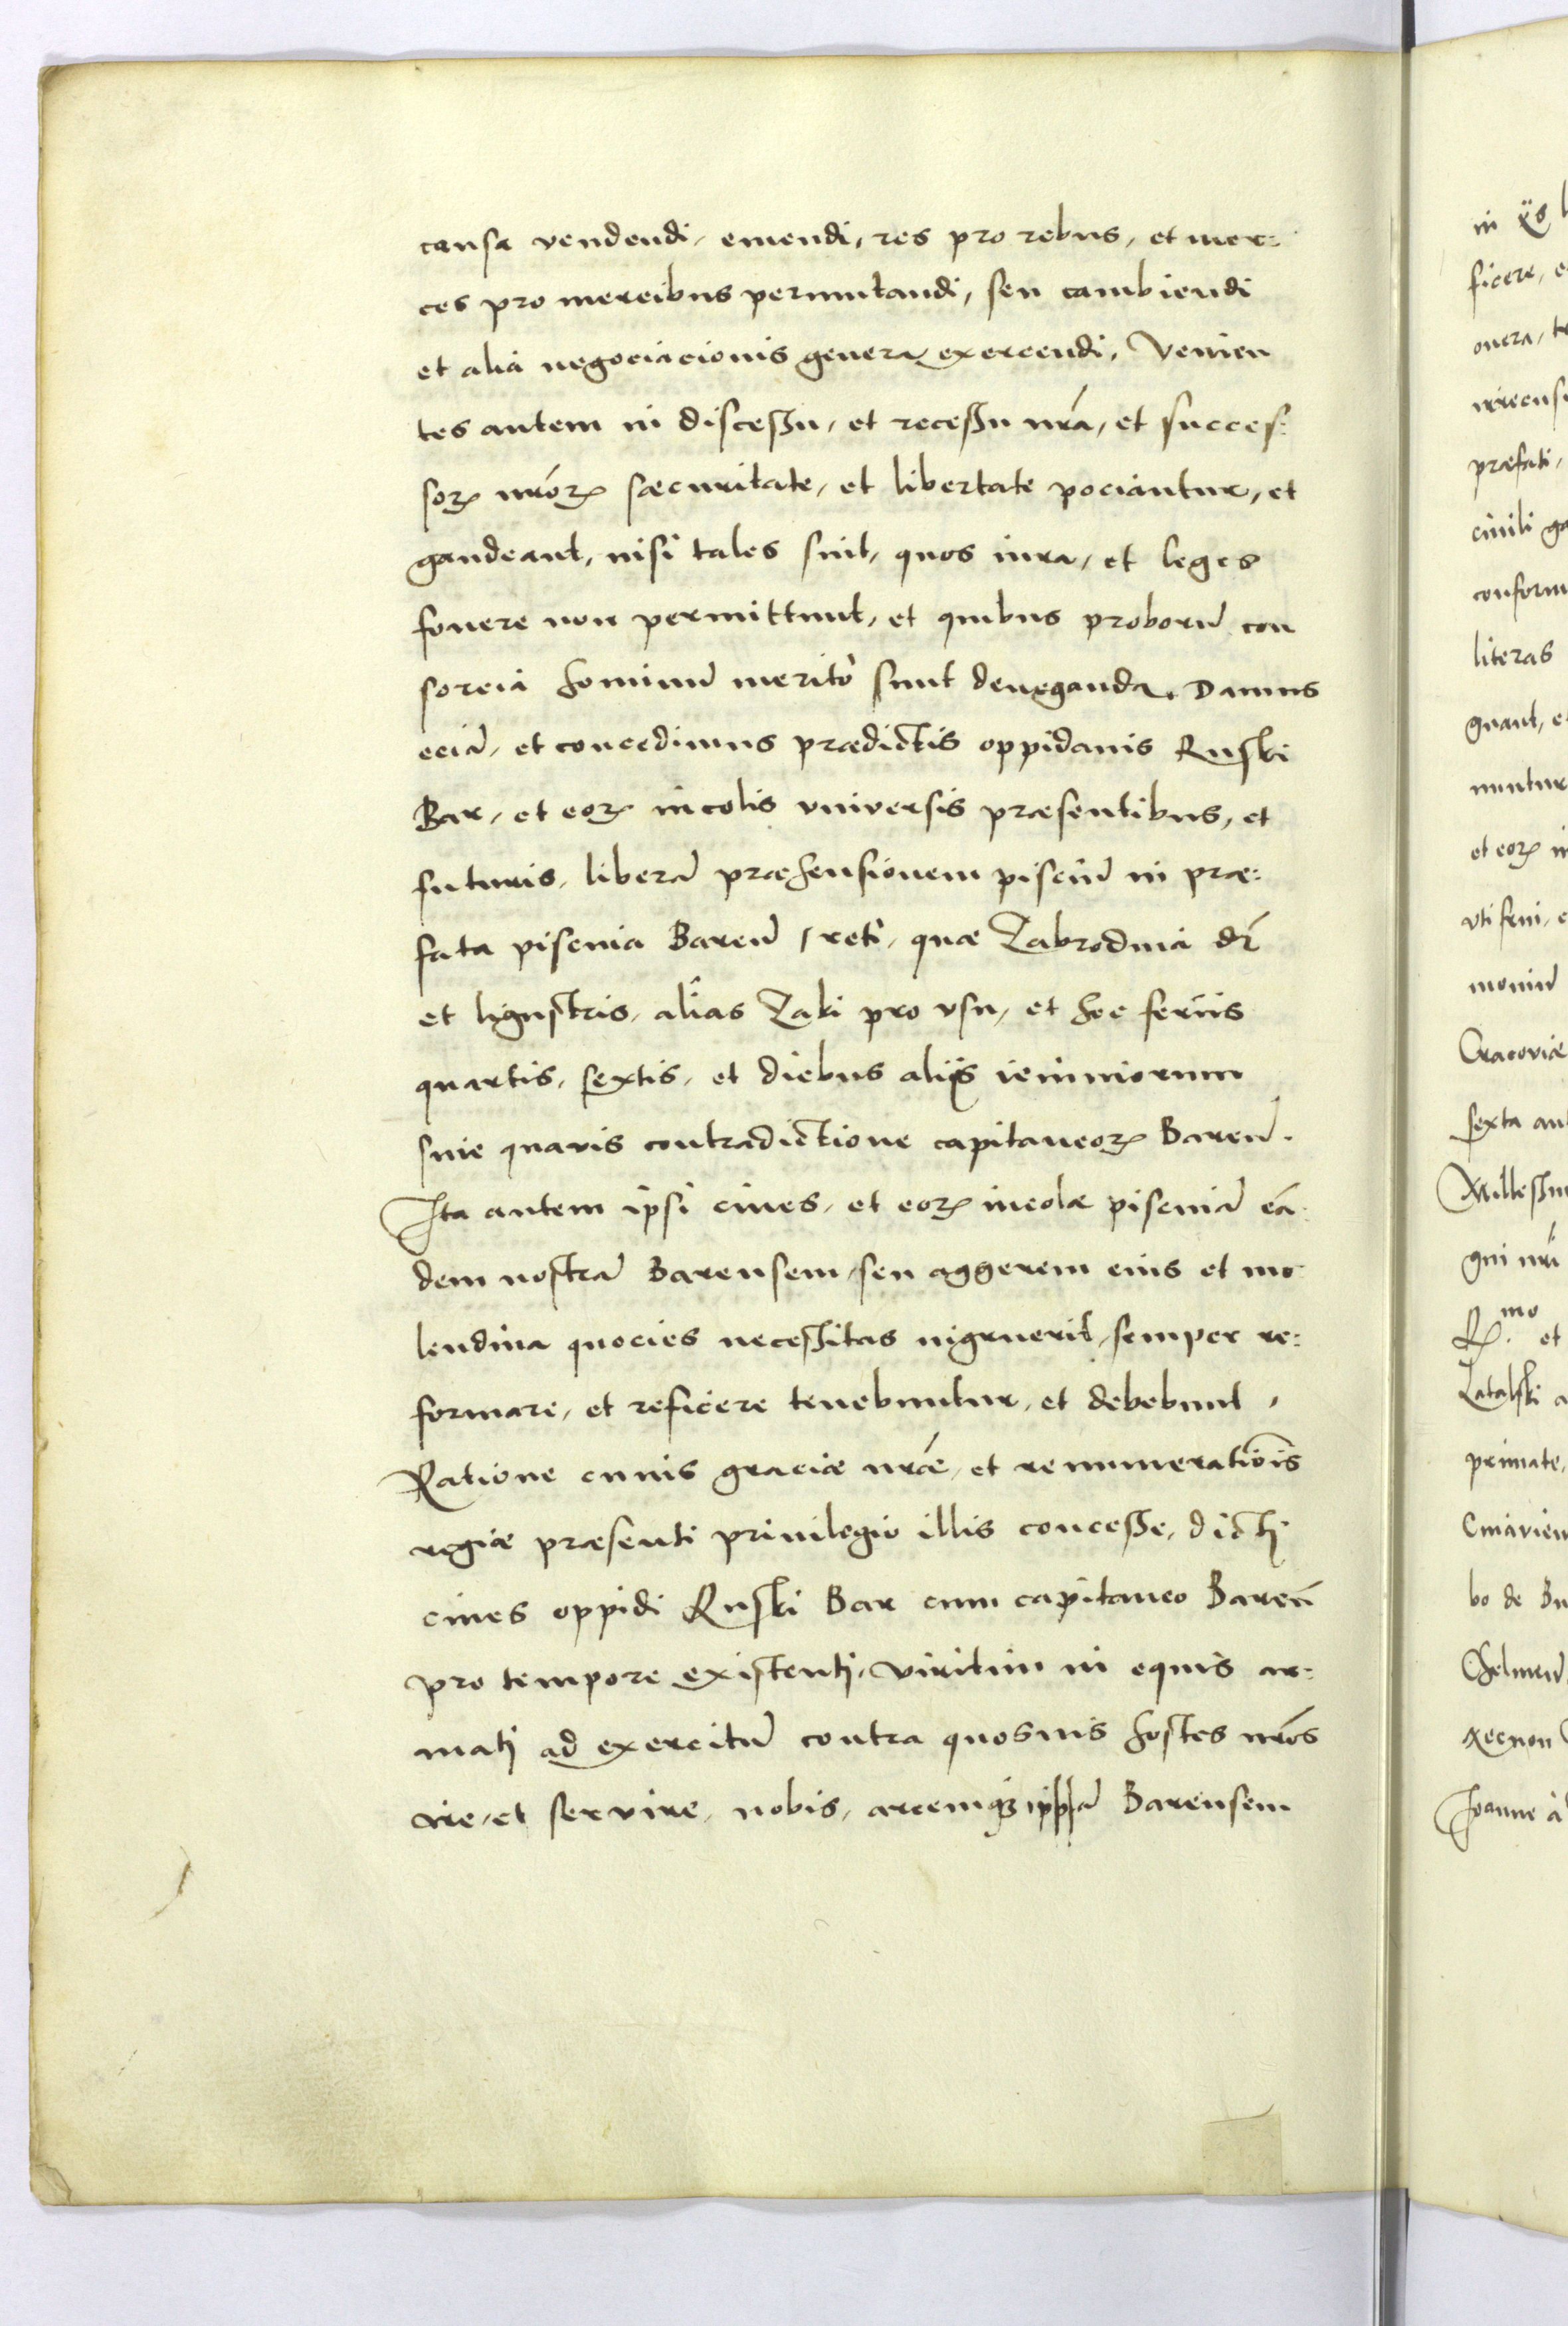 causa vendendi, emendi, res pro rebus, et mer:
ces pro mercibus permutandi, seu cambiendi
et alia negociacionis genera exercendi. Venien
tes autem in discessu, et recessu nrã, et succes:
soꝝ nr̃oꝝ sæcuritate, et libertate pociantur, et
gaudeant, nisi tales sint, quos iura, et leges
fouere non permittunt, et quibus proborũ con
sorcia hominũ meritò sunt deneganda. Damus
eciã, et concedimus prædictis oppidanis Ruski
Bar, et eoꝝ incolis vniversis præsentibus, et
futuris, liberã præhensionem pisciũ in præ:
fata piscina Bareñ, reti, quæ Zabrodnia dr̃
et ligustris, aliàs Zaki pro vsu, et hoc feriis
quartis, sextis, et diebus aliis ieiuniorum
sine quavis contradictione capitaneoꝝ Bareñ.
Ita autem ipsi ciues, et eoꝝ incolæ piscinã eã:
dem nostrã Barensem, seu aggerem eius et mo
lendina quocies necessitas ingruerit, semper re:
formare, et reficere tenebuntur, et debebunt,
Ratione cuius graciæ nræ̃, et remunerationis
regiæ præsenti priuilegio illis concessæ, dicti
ciues oppidi Ruski Bar cum capitaneo Bareñ
pro tempore existenti, viritim in equis ar:
mati ad exercitũ contra quosuis hostes nr̃os
ire, et servire, nobis, arcemqꝫ ipsã Barensem
in
ficere, e
onera, te
præfati,
ciuili ga
conform
literas
gnant, e
nuntur
et eoꝝ in
vti frui, e
moniũ
Cracoviæ
sexta an
Millessim
gni nri
R.mo et
Latalski a
primate,
Cuiavien
bo de Bn
Chelmeñ
necnon
Joanne à